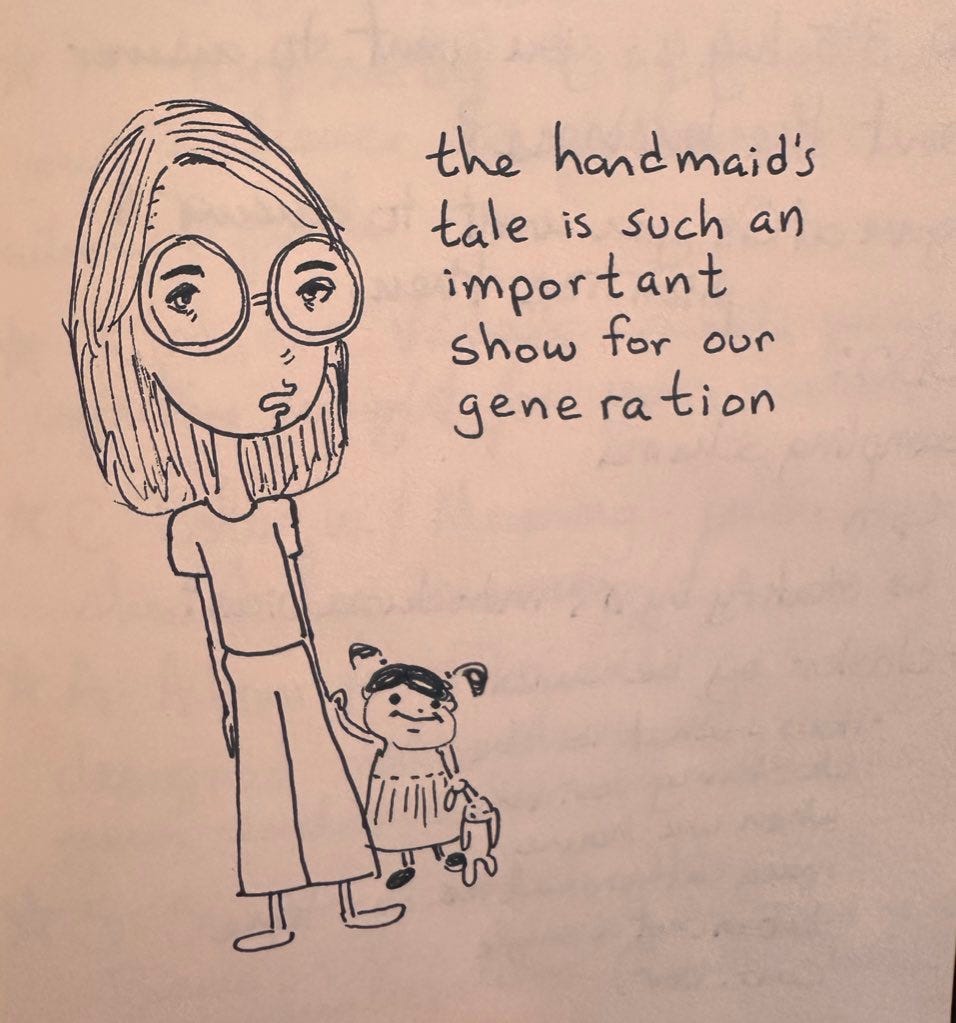 the handmaid's
tale is such an
important
show for our
generation